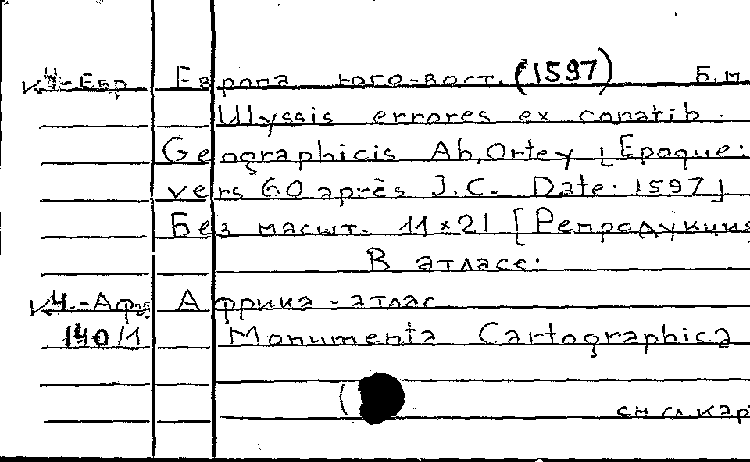 К 4-Евр Европа юго-вост. (1597) б.м
Ulyssis errores ex conatib.
Geographicis Ab. Ortey [Epoque:
vers 60 après J.C. Date: 1597]
Без масшт. 11x21 [Репродукция
В атласе:
К 4.-Афр Африка - атлас
140/1 Monumenta Cartographica
см сл. кар